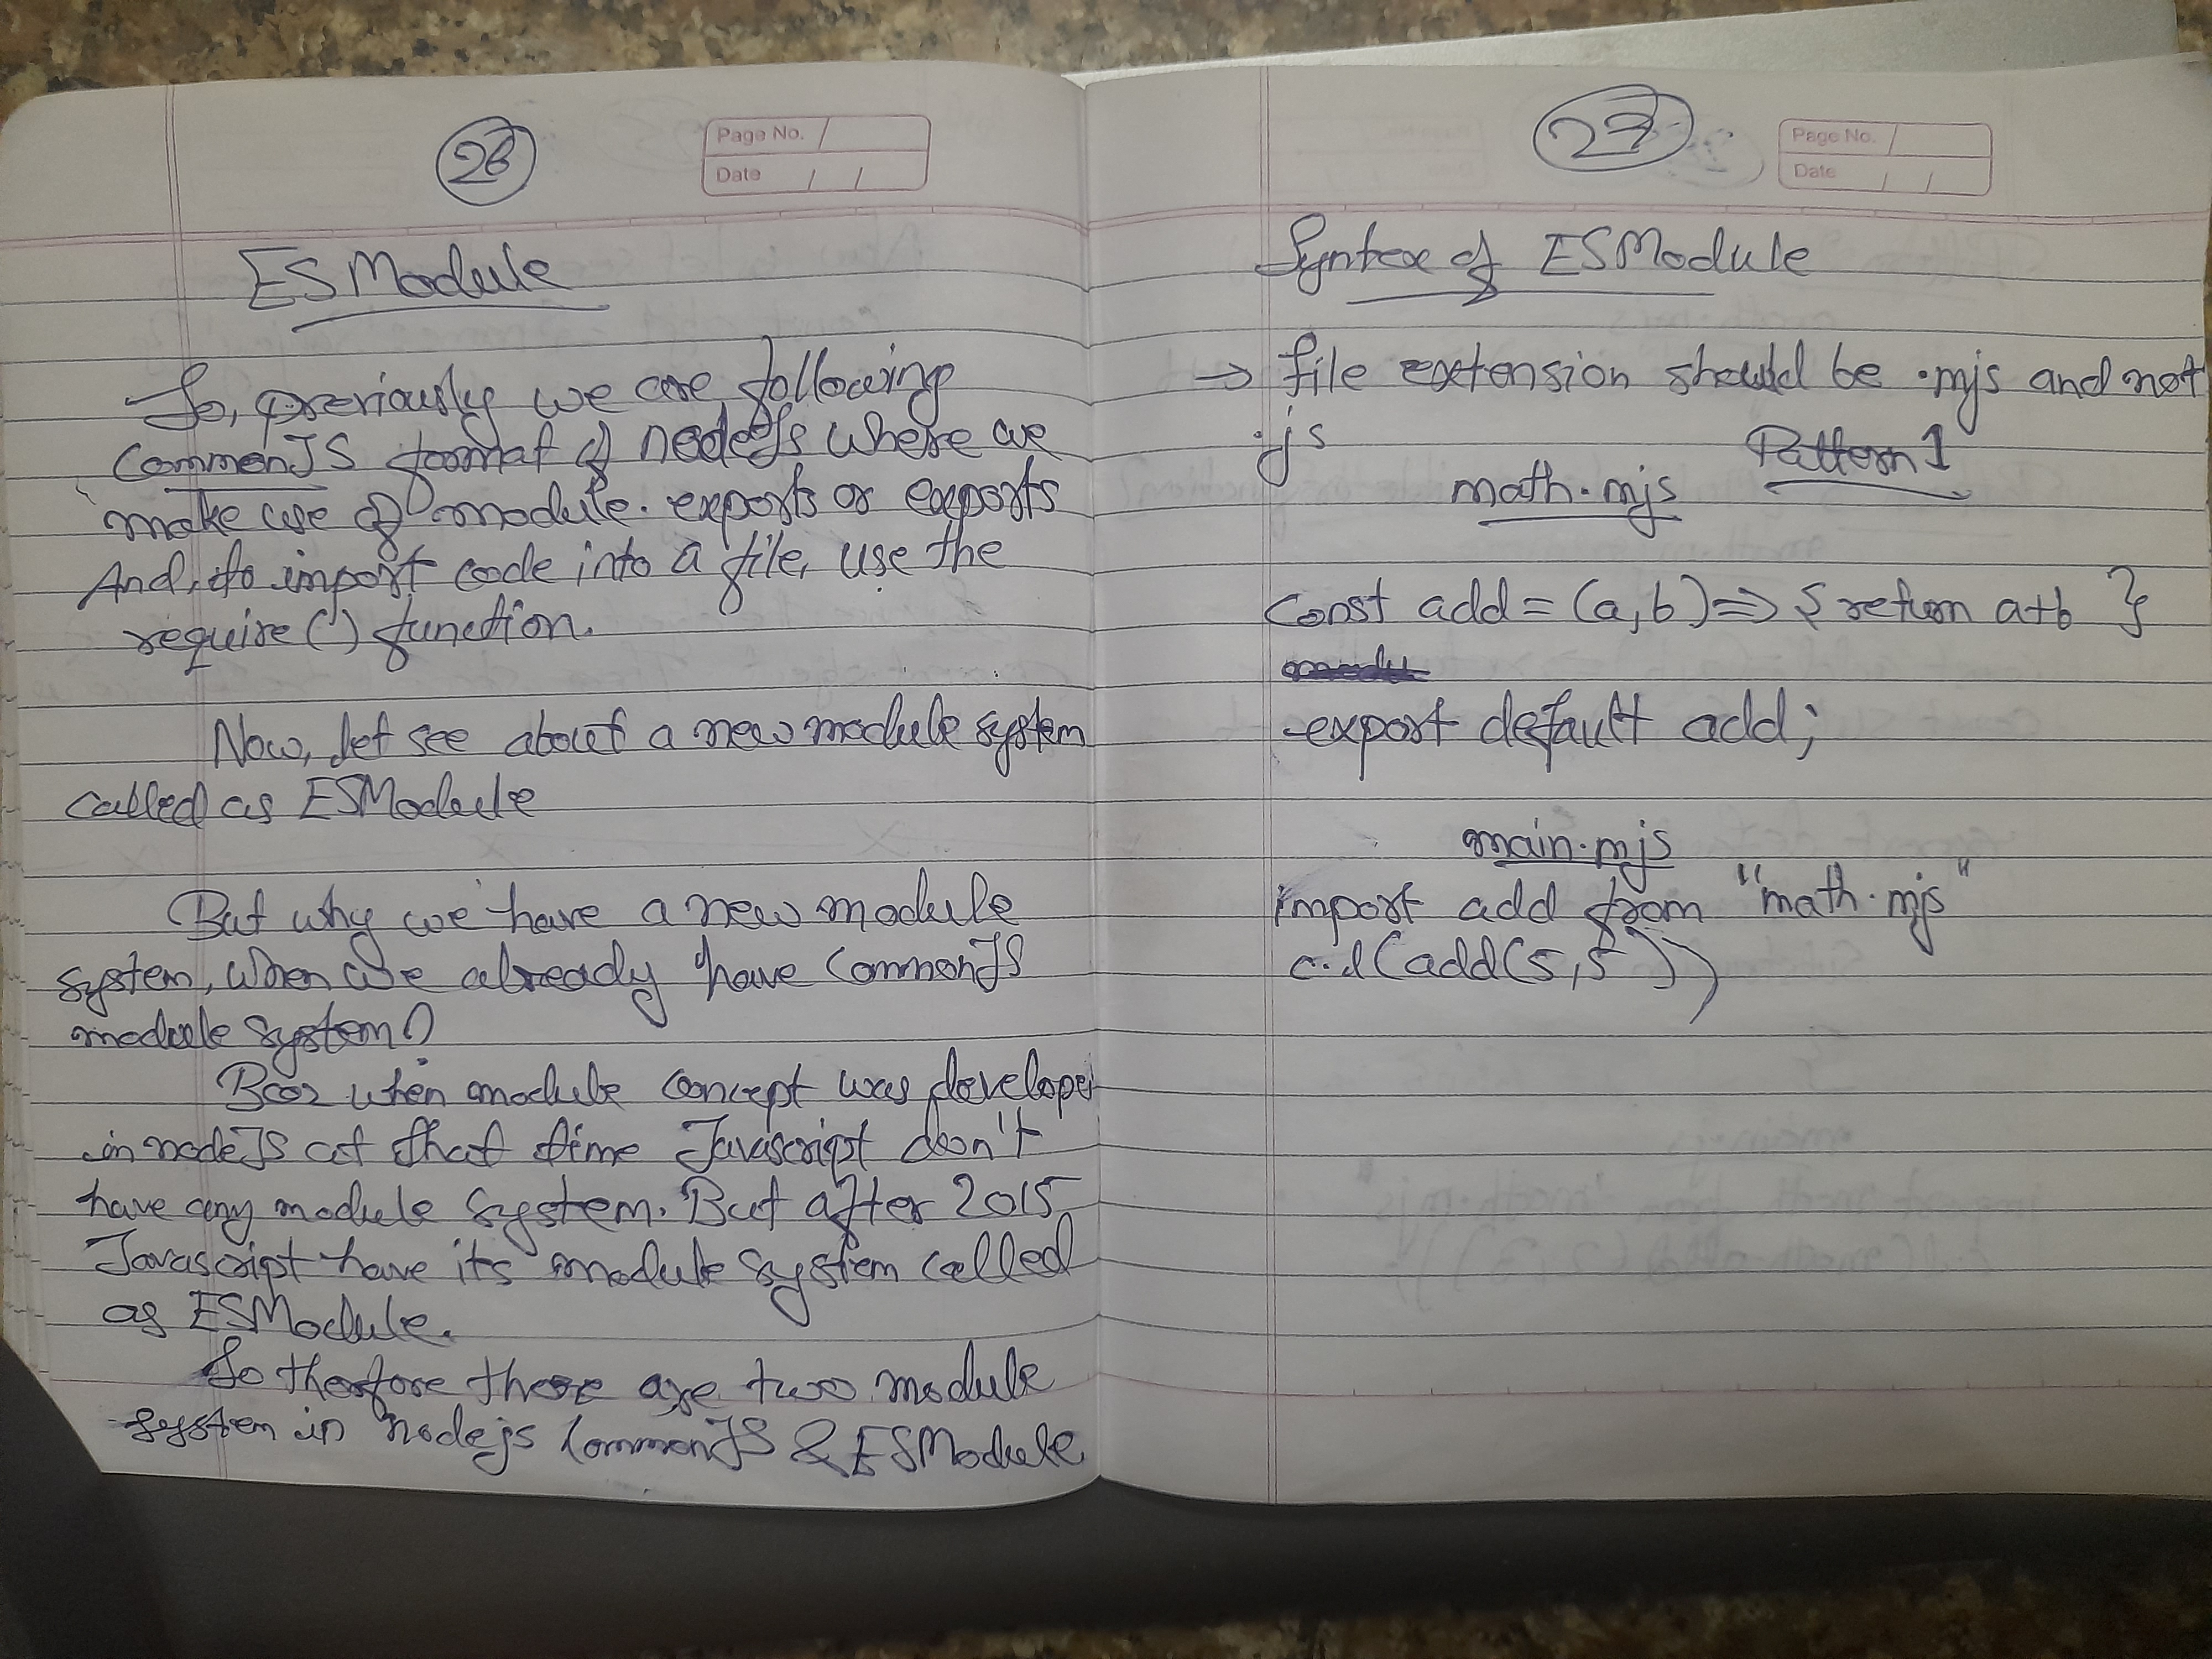 26
Page No.
Date / /
ESModule
So, previously we are following
CommonJS format of nodeJs where we
make use of module.exports or exports
And, to import code into a file, use the
require() function.
Now, let see about a new module system
called as ESModule
But why we have a new module
system, when we already have CommonJS
module system?
Bcoz when module concept was develope
in nodeJS at that time Javascript don't
have any module system. But after 2015
Javascript have its module system called
as ESModule.
So therefore there are two module
system in nodejs CommonJS & ESModule
27
Page No.
Date / /
Syntex of ESModule
→ file extension should be .mjs and not
.js
Pattern 1
math.mjs
const add = (a,b) => { return a+b }
export default add;
main.mjs
import add from "math.mjs"
c.l(add(5,5))